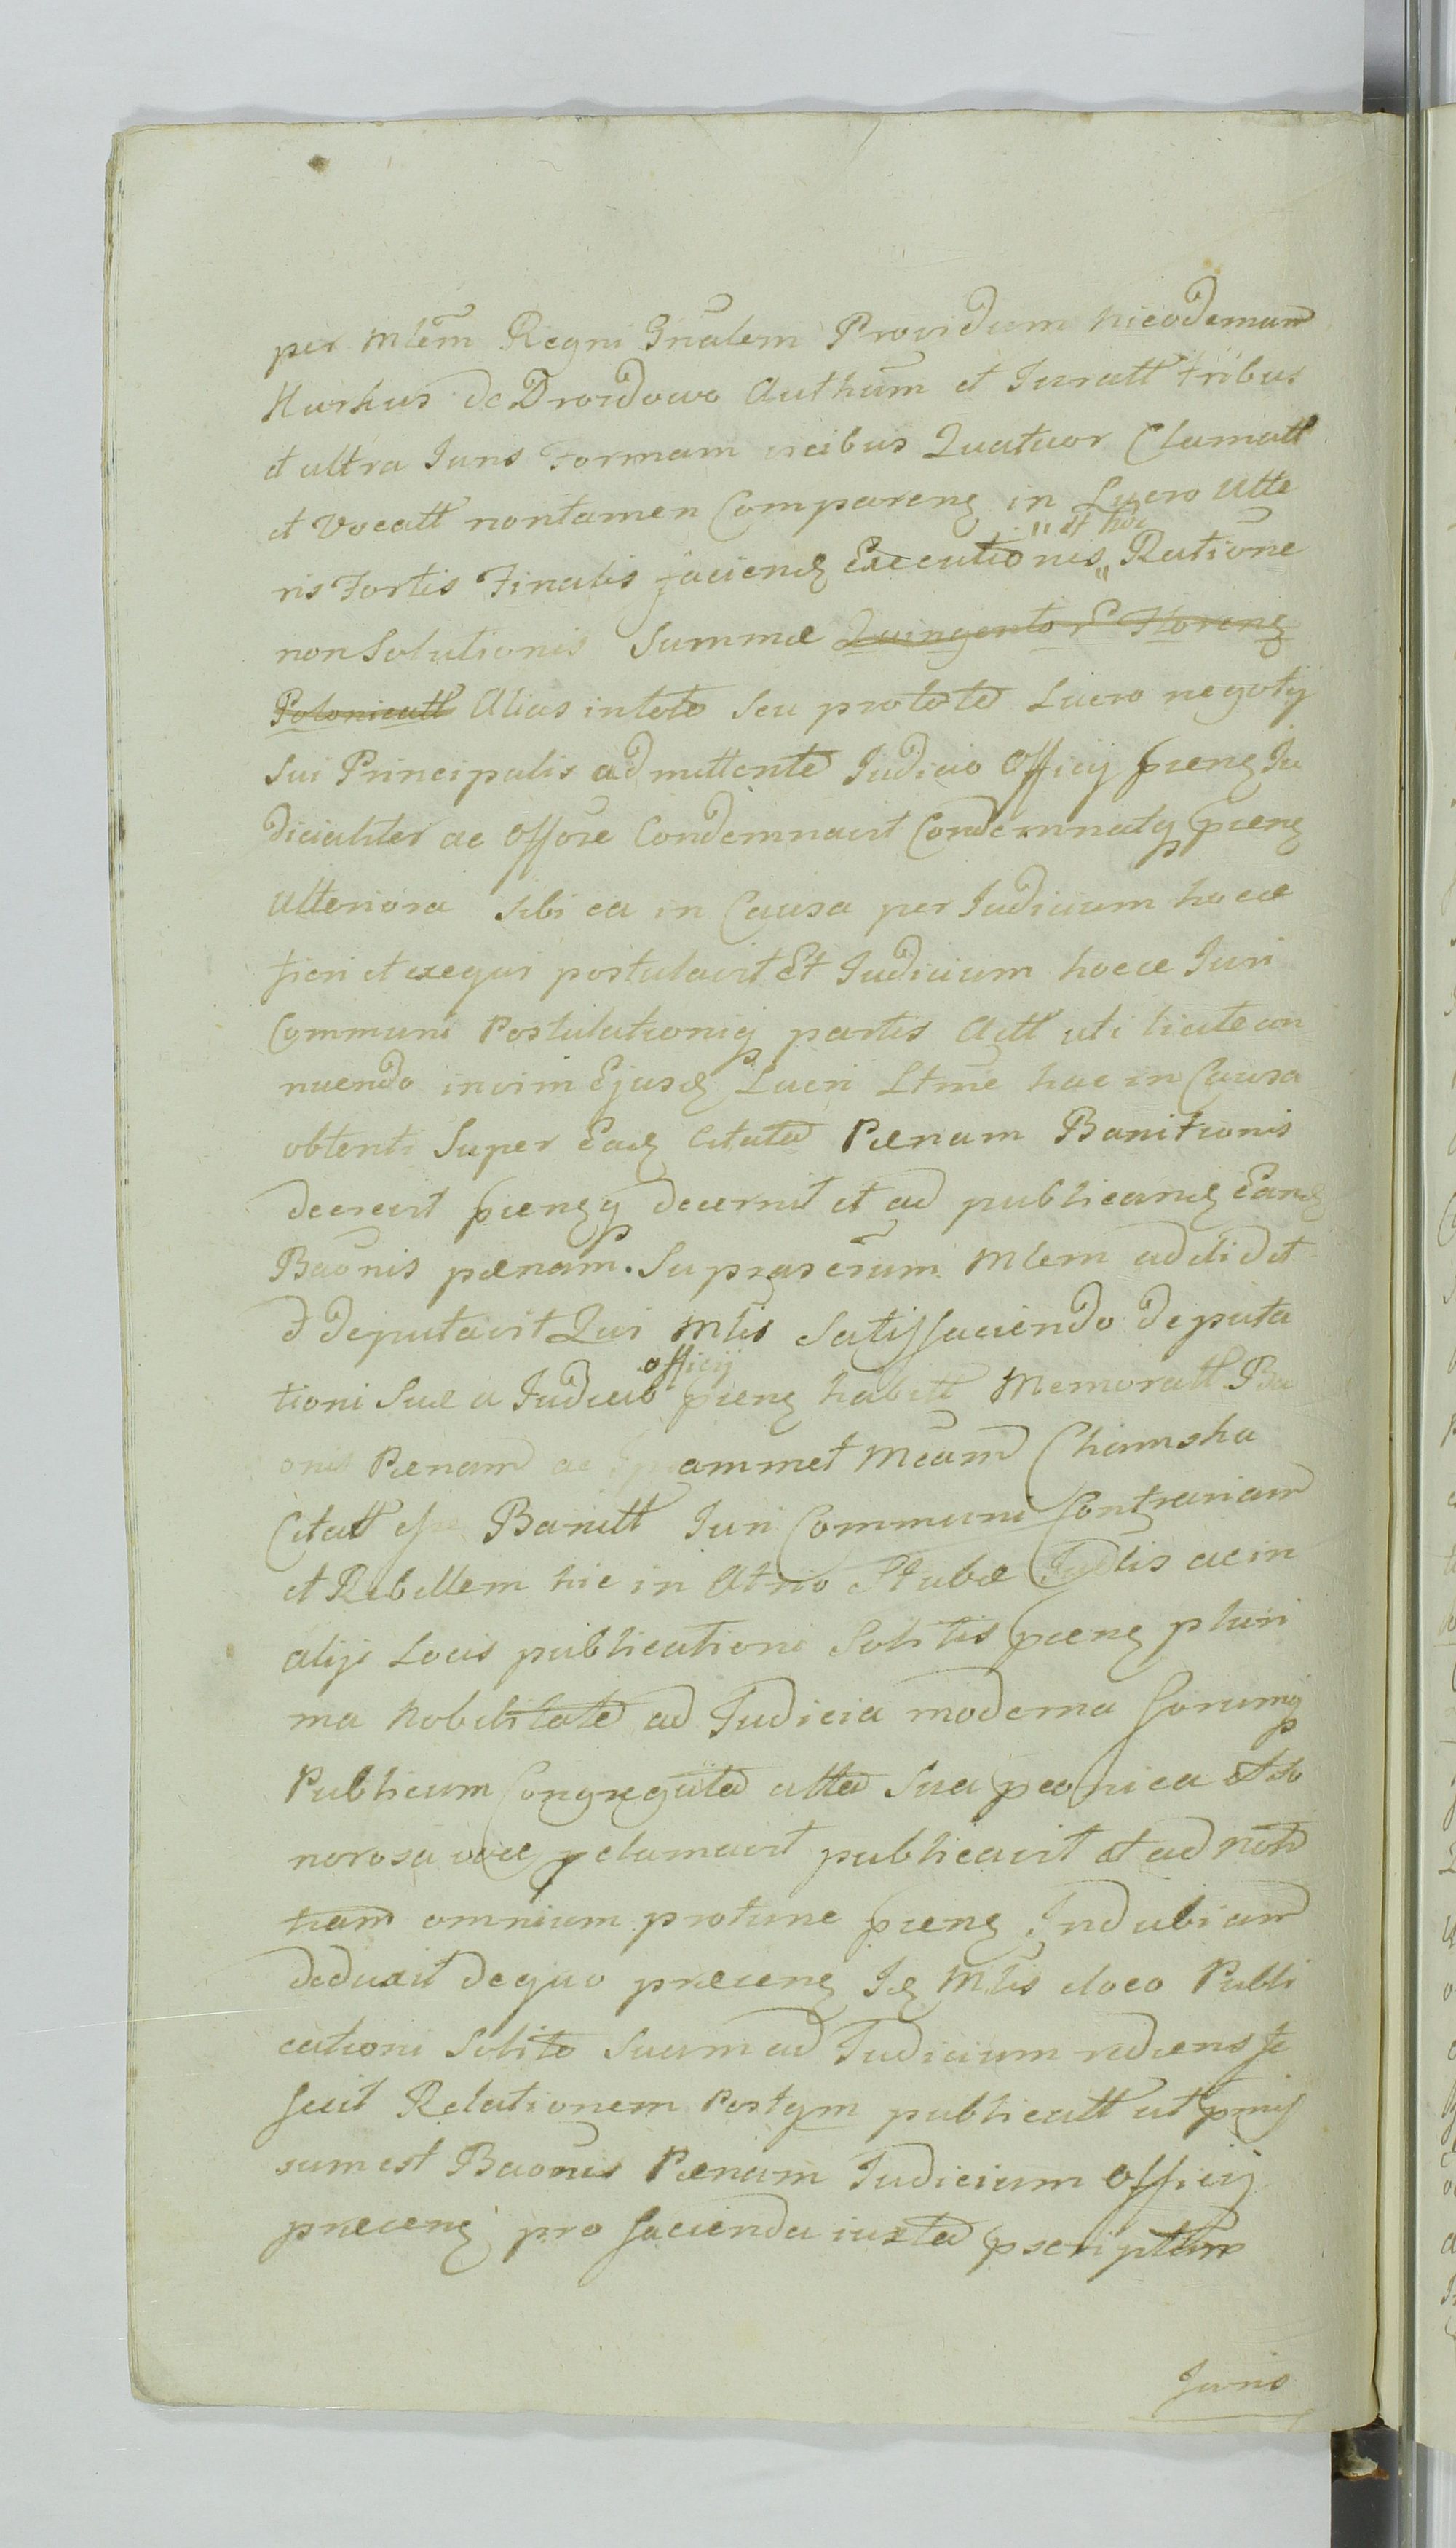 per Mlem Regni Gnalem Providum Nicodemum
Kurkus de Drozdowo Authum et Juratt tribus
et ultra Juris Formam vicibus Quatuor Clamatt
et Vocatt nontamen Comparenz in Lucro Ulte
ris Fortis Finalis faciend Executionis " et hoc " Ratione
non Solutionis Summæ Quingentor Florenz
Polonicatt Alias intoto Seu prototo Lucro negotij
Sui Principalis admittente Judicio Officij pnenz Ju
dicialiter ac Offose Condemnavit Condemnatq pnenz
Ulteriora sibi ea in Causa per Judicium hocce
fieri et exequi postulavit Et Judicium hocce Juri
Communi Postulationiq partis Actt uti licite an
nuendo invim Ejusd Lucri Ltme hac in Causa
obtenti Super Ead Citata Pænam Banitionis
decrevit pnenzq decernit et ad publicand Eand
Baonis pænam. Suprascrum Mlem addidit
d deputavit Qui Mlis Satisfaciendo deputa
tioni Suæ a Judicio officij pnenz habitt Memoratt Ba
onis Pænam ac ipsammet Mcam Chamska
Citatt esse Banitt Juri Communi Contrariam
et Rebellem hic in Atrio Stubæ Judlis ac in
alijs Locis publicationi Solitis pnenz pluri
ma Nobilitate ad Judicia moderna forumq
Publicum Congregata alta Sua præconica et so
norosa voce pclamavit publicavit et ad noti
tiam omnium protunc pnenz Indubiam
deduxit dequo præcenz Id Mlis eloco Publi
cationi Solito Suum ad Judicium rediens fe
fecit Relationem Postqm publicatt ut pmis
sum est Baonis Pænam Judicium Officij
præcenz pro facienda iuxta pscriptum
Juris